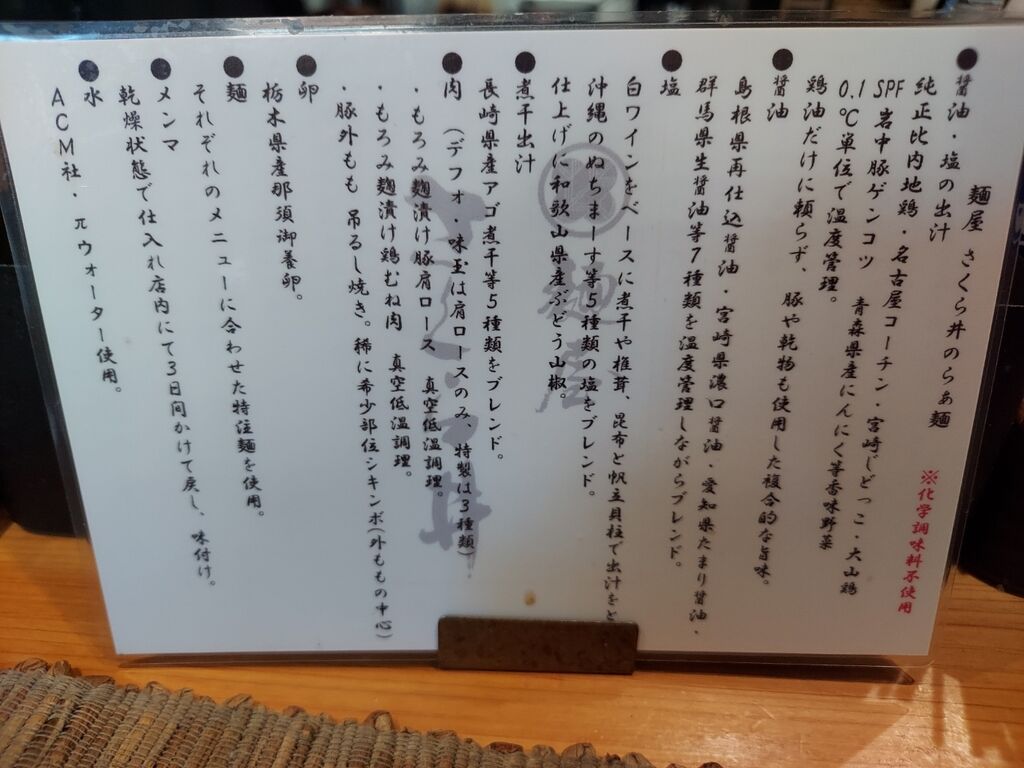 麺屋 さくら井のらぁ麺
※化学調味料不使用
●醤油・塩の出汁
純正比内地鶏・名古屋コーチン・宮崎じどっこ・大山鶏
SPF岩中豚ゲンコツ 青森県産にんにく等香味野菜
0.1℃単位で温度管理。
鶏油だけに頼らず、豚や乾物も使用した複合的な旨味。
●醤油
島根県再仕込醤油・宮崎県濃口醤油・愛知県たまり醤油・
群馬県生醤油等7種類を温度管理しながらブレンド。
●塩
白ワインをベースに煮干や椎茸、昆布と帆立貝柱で出汁をと
沖縄のぬちまーす等5種類の塩をブレンド。
仕上げに和歌山県産ぶどう山椒。
●煮干出汁
長崎県産アゴ煮干等5種類をブレンド。
●肉 (デフォ・味玉は肩ロースのみ、特製は3種類)
・もろみ麹漬け豚肩ロース 真空低温調理。
・もろみ麹漬け鶏むね肉 真空低温調理。
・豚外もも 吊るし焼き。稀に希少部位シキンボ(外ももの中心)
●卵
栃木県産那須御養卵。
●麺
それぞれのメニューに合わせた特注麺を使用。
●メンマ
乾燥状態で仕入れ店内にて3日間かけて戻し、味付け。
●水
ACM社・πウォーター使用。
麺屋
さくら井